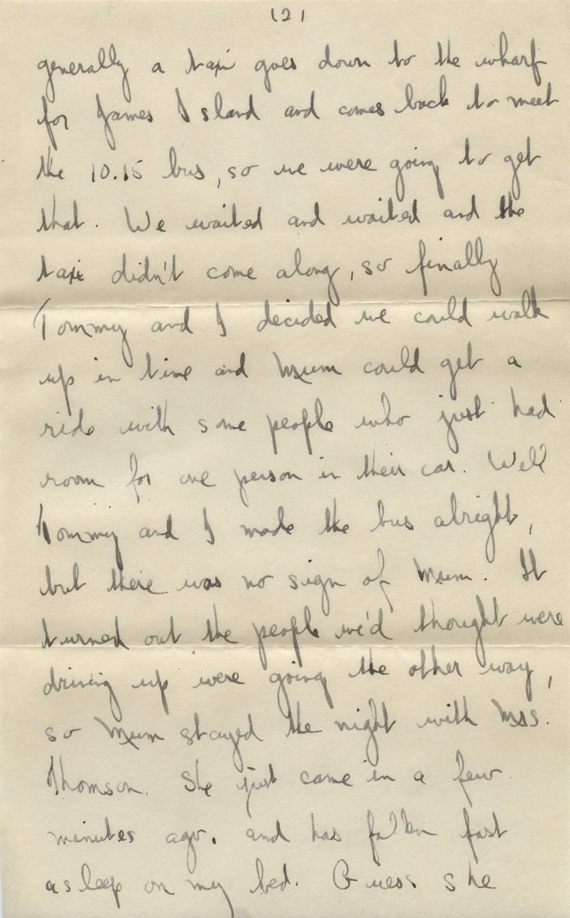 (2)
generally a taxi goes down to the wharf
for James Island and comes back to meet
the 10.15 bus, so we were going to get
that. We waited and waited and the
taxi didn't come along, so finally
Tommy and I decided we could walk
up in time and Mum could get a
ride with some people who just had
room for one person in their car. Well
Tommy and I made the bus alright,
but there was no sign of Mum. It
turned out the people we'd thought were
driving up were going the other way,
so Mum stayed the night with Mrs.
Thomson. She just came in a few
minutes ago. and has fallen fast
asleep on my bed. Guess she